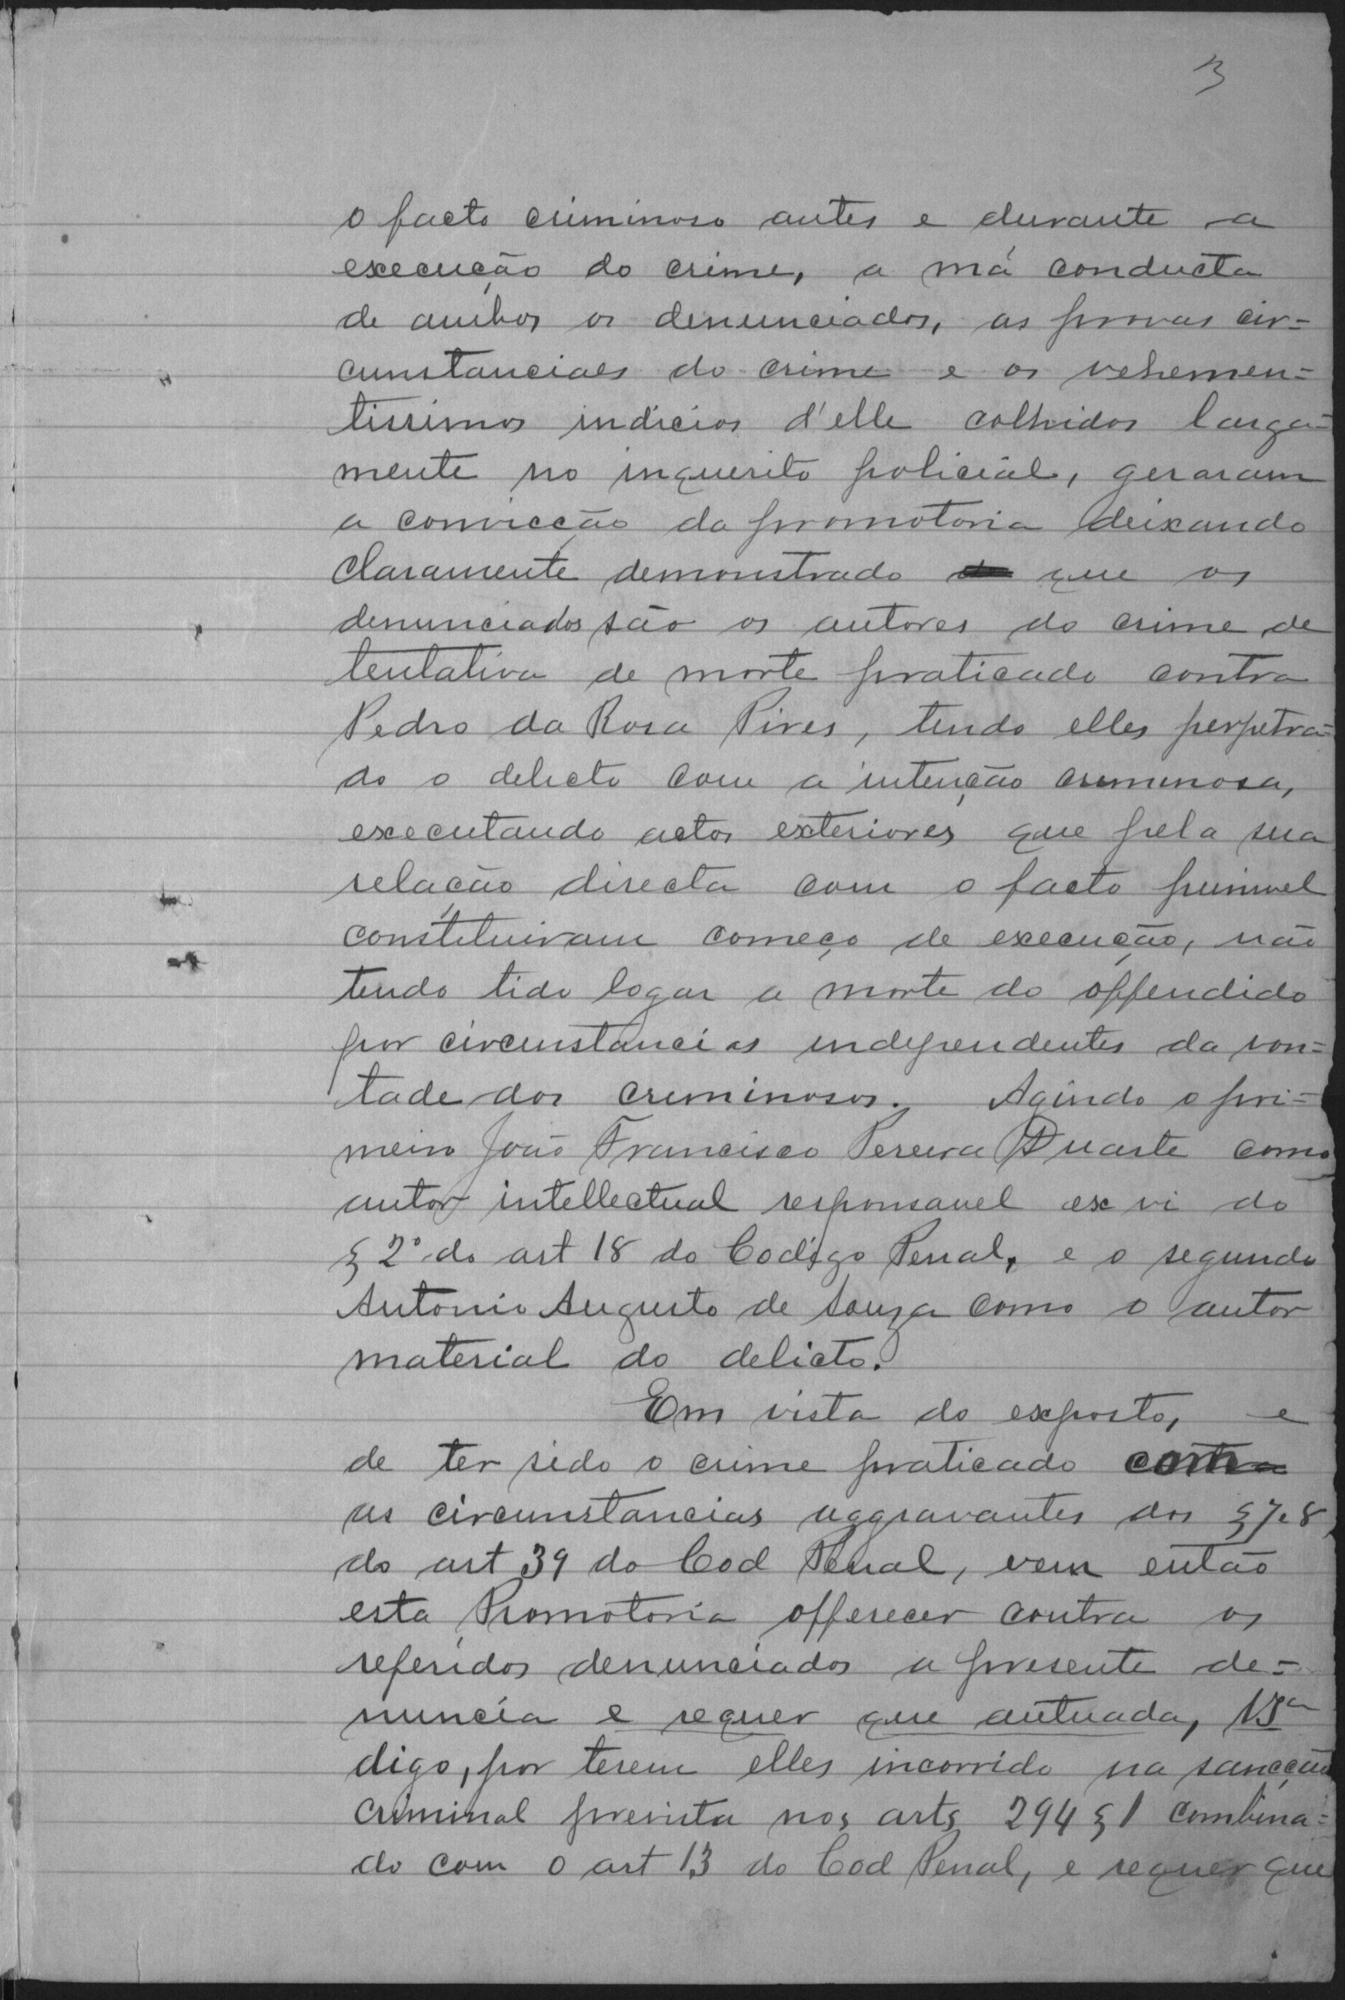 3
o facto criminoso antes e durante a
execução do crime, a má conducta
de ambos os denunciados, as provas cir=
cunstanciaes do crime e os vehemen=
tissimos indicios d'elle colhidos larga=
mente no inquerito policial, geraram
a convicção da promotoria deixando
claramente demonstrado que os
denunciados são os autores do crime de
tentativa de morte praticado contra
Pedro da Rosa Pires, tendo elles perpetra=
do o delicto com a intenção criminosa,
executando actos exteriores que pela sua
relação directa com o facto punivel
constituiram começo de execução, não
tendo tido logar a morte do offendido
por circunstancias independentes da von=
tade dos criminosos. Agindo o pri=
meiro João Francisco Pereira Duarte como
autor intellectual responsavel ex vi do
§ 2º do art 18 do Codigo Penal, e o segundo
Antonio Augusto de Souza como o autor
material do delicto.
Em vista do exposto, e
de ter sido o crime praticado com
as circunstancias aggravantes dos §7.8
do art 39 do Cod Penal, vem então
esta Promotoria offerecer contra os
referidos denunciados a presente de=
nuncia e requer que autuada,
digo, por terem elles incorrido na sancção
criminal prevista nos arts 294 § 1 combina=
do com o art 13 do Cod Penal, e requer que